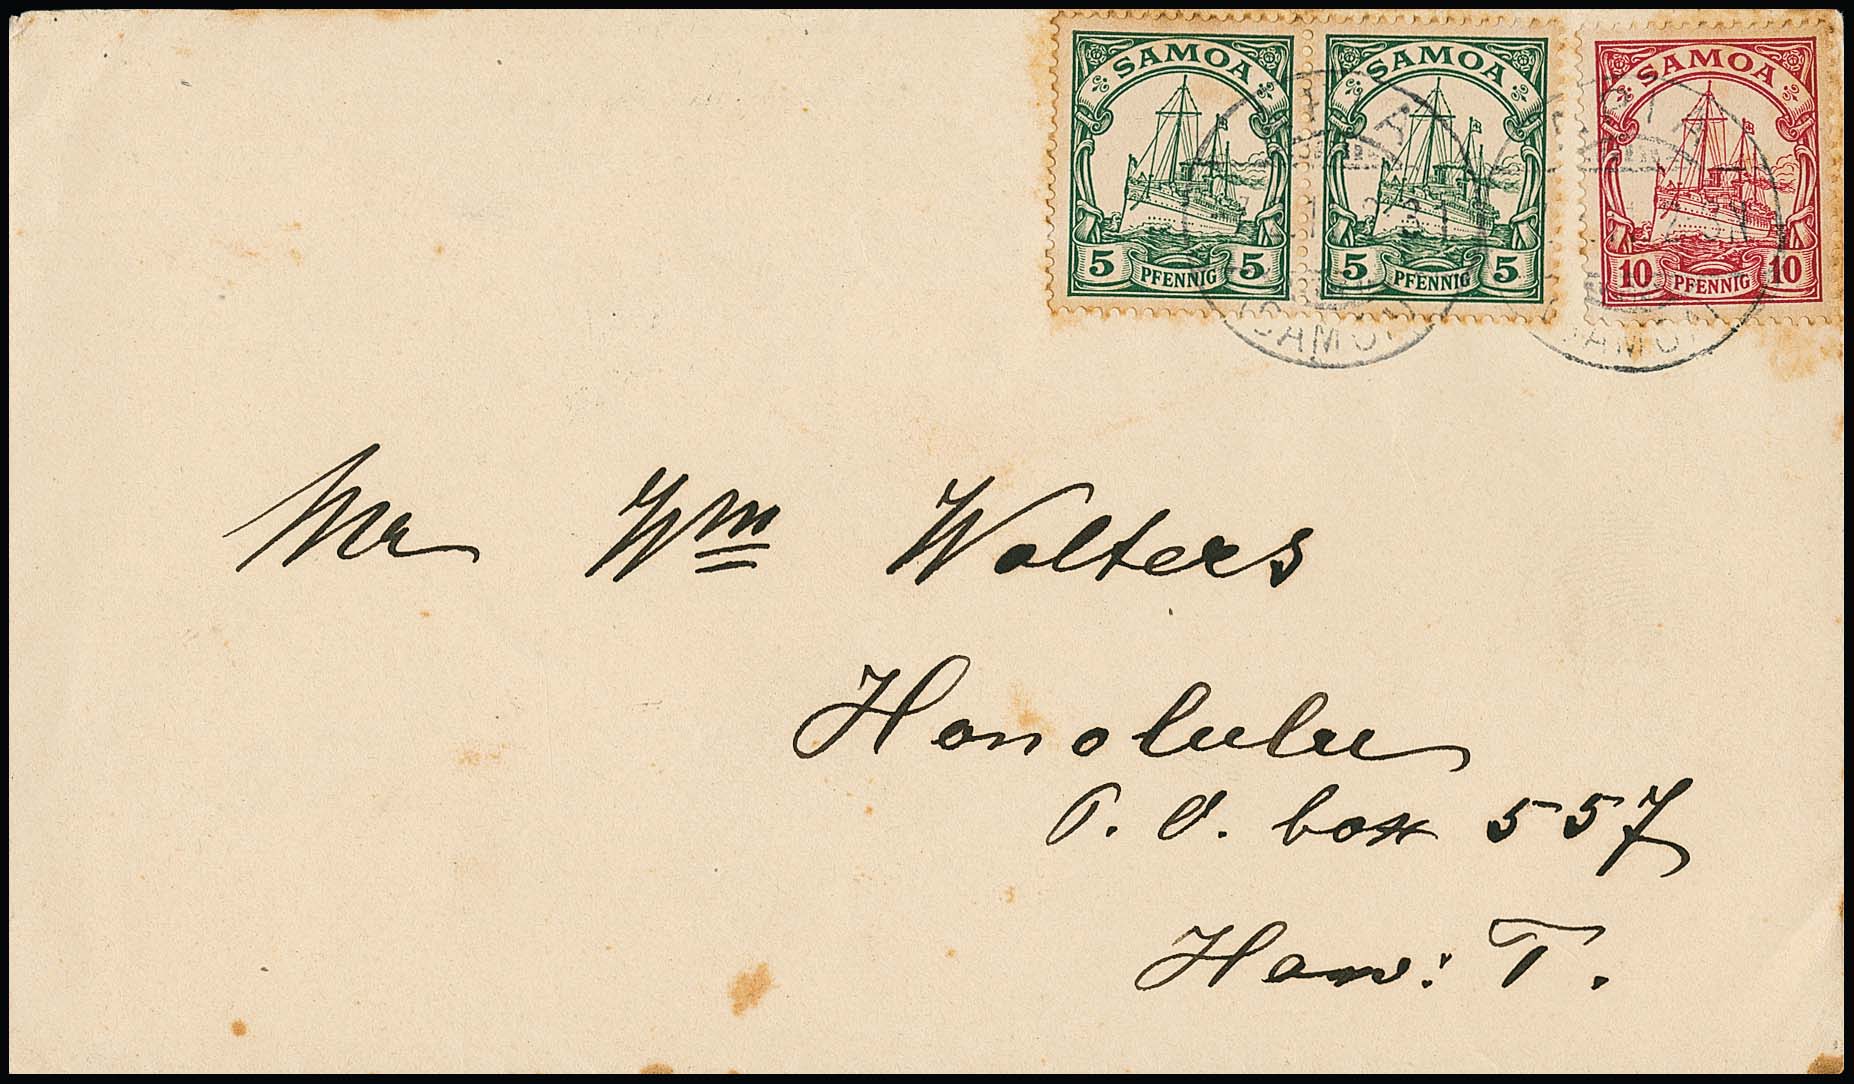 SAMOA SAMOA SAMOA
5 PFENNIG 5 5 PFENNIG 5 10 PFENNIG 10
SAMOA SAMOA
Mr Wm Wolters
Honolulu
P. O. box 557
Haw: T.